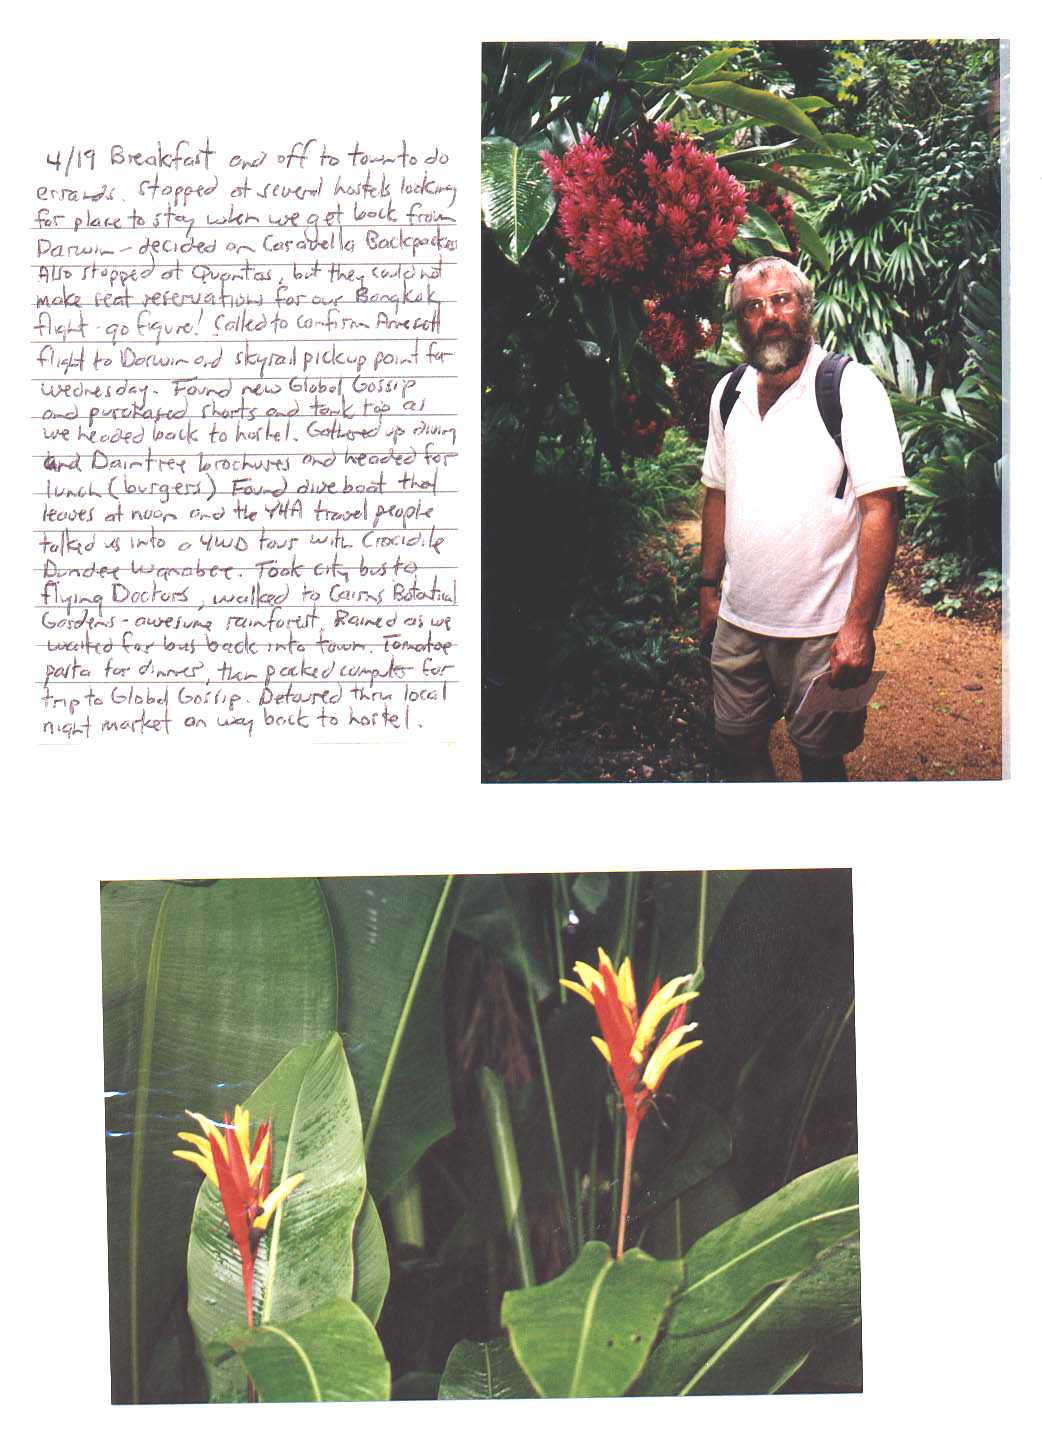 4/19 Breakfast and off to town to do
errands. Stopped at several hostels looking
for place to stay when we get back from
Darwin - decided on Caravella Backpackers
Also stopped at Quantas, but they could not
make seat reservations for our Bangkok
flight - go figure! Called to confirm Ansett
flight to Darwin and skyrail pickup point for
Wednesday. Found new Global Gossip
and purchased shorts and tank top as
we headed back to hostel. Gathered up diving
and Daintree brochures and headed for
lunch (burgers) Found dive boat that
leaves at noon and the YHA travel people
talked us into a 4WD tour with Crocidile
Dundee Wanabee. Took city bus to
flying Doctors, walked to Cairns Botanical
Gardens - awesome rainforest. Rained as we
waited for bus back into town. Tomatoe
pasta for dinner, then packed computer for
trip to Global Gossip. Detoured thru local
night market on way back to hostel.